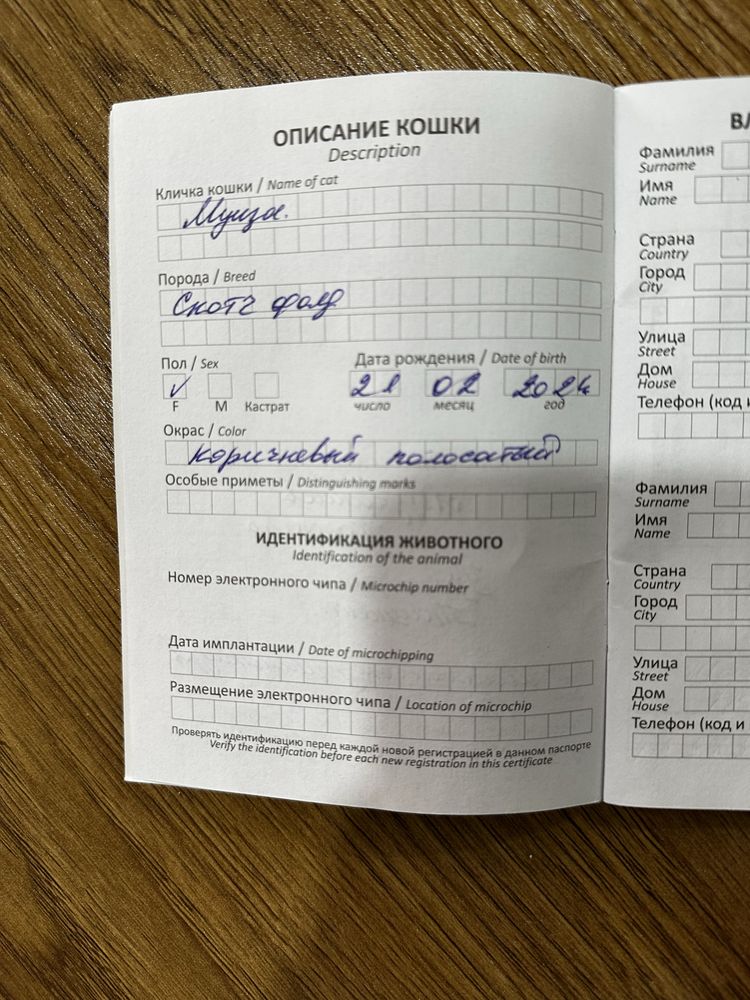 ОПИСАНИЕ КОШКИ
Description
Кличка кошки / Name of cat
Порода / Breed
Скотч фолд
Пол / Sex
Дата рождения / Date of birth
21 02 2024
F M Кастрат
число месяц год
Окрас / Color
коричневый полосатый
Особые приметы / Distinguishing marks
ИДЕНТИФИКАЦИЯ ЖИВОТНОГО
Identification of the animal
Номер электронного чипа / Microchip number
Дата имплантации / Date of microchipping
Размещение электронного чипа / Location of microchip
Проверять идентификацию перед каждой новой регистрацией в данном паспорте
Verify the identification before each new registration in this certificate
Фамилия
Surname
Имя
Name
Страна
Country
Город
City
Улица
Street
Дом
House
Телефон (код и
Фамилия
Surname
Имя
Name
Страна
Country
Город
City
Улица
Street
Дом
House
Телефон (код и